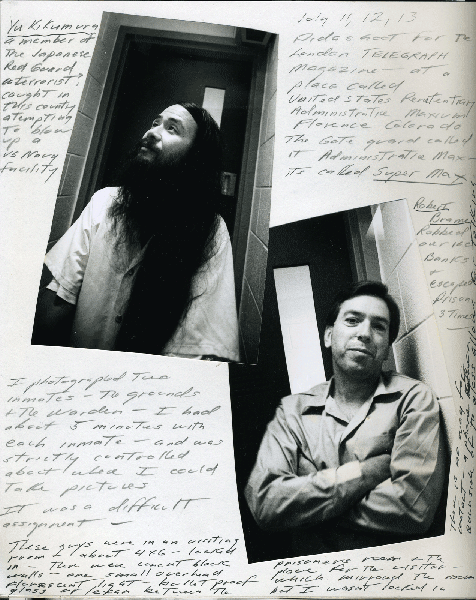 Yu Kikumura
a member of
The Japanese
Red Guard
a terrorist
caught in
this country
atempting
to blow
up a
US Navy
facility
July 11, 12, 13
Photo shoot for the
London TELEGRAPH
Magazine — at a
place called
United States Penitentiary
Administrative Maximum
Florence Colorado
The Gate guard called
it Administrative Max
its called Super Max
Robert
Robbed
Banks
&
escaped
Prison
3 Times
I photographed Two
inmates — the grounds
& the warden — I had
about 5 minutes with
each inmate — and was
strictly controlled
about what I could
take pictures
It was a difficult
assignment —
These guys were in an visiting
room about 4x6 — locked
in — There were block
walls — one small overhead
florescent light — bullet proof
glass between the
prisoners room & the
place for the visitor —
which mirrored the room
but I wasn't locked in